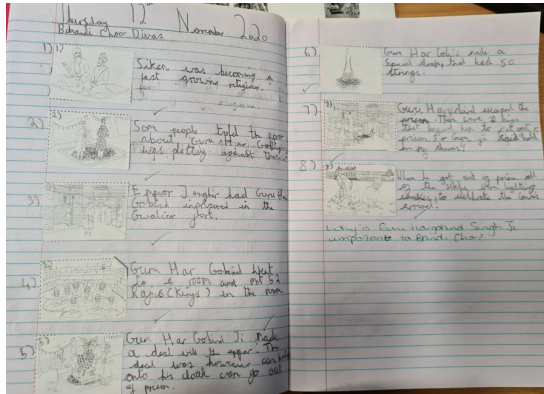 Thursday 12th November 2020
Bhandi Choor Divas
1) 1)
Siken was becoming a
fast growing religion.
religion
2) 2)
Som people told the
about Guru Har Gobind
was plotting against
3) 3)
Emperor Jangir had Guru Ha
Gobind inprisoned in the
Gwalior fort.
4)
Guru Har Gobind went
to a room and met 52
Rajas (Kings) in the room
5) 5)
Guru Har Gobind Ji made
a deal with the epper. The
deal was however can hold
onto his cloak can go out
of prison.
6)
Guru Har Gobind made a
Special cloak that had 50
strings.
7)
Guru Hargobind escaped the
prison. There were 2 kings
that
prison for Guru ji
8)
When he got out of prison all
of the sikhs were lighting
candles to celebrate the Gurus
arrival.
Why is Guru Hargobind Singh Ji
important to Bandi Chor?